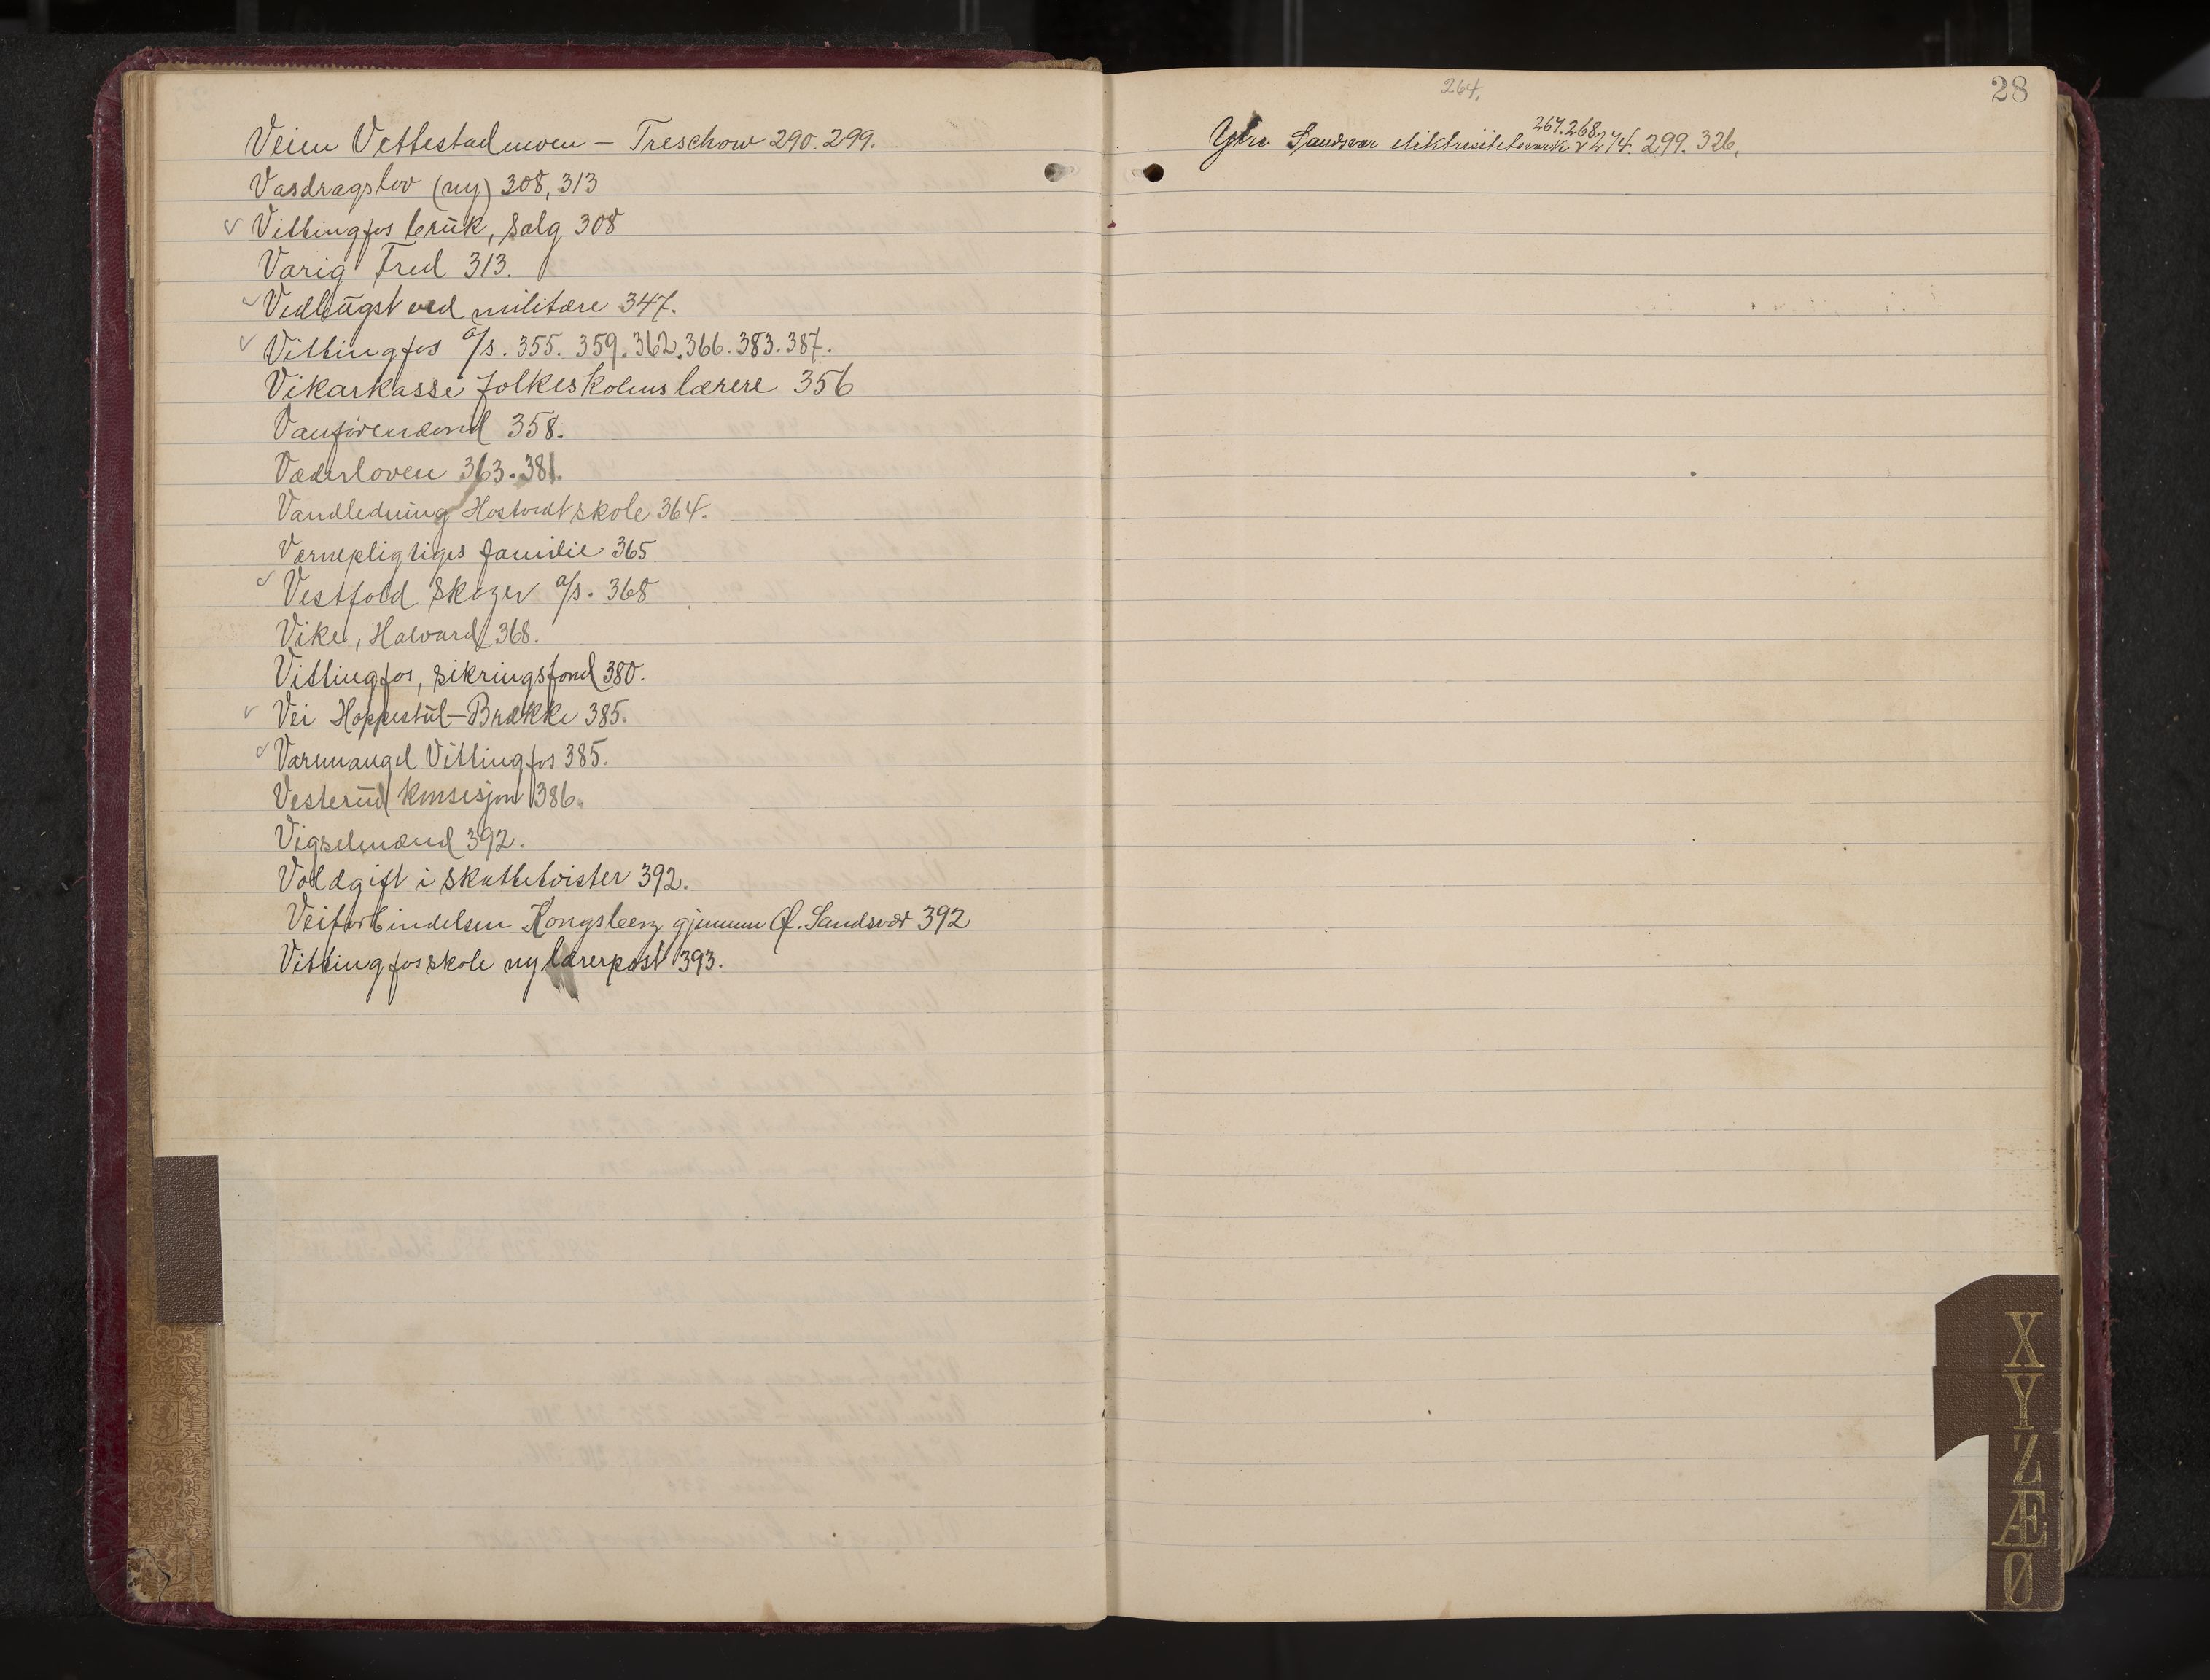 Veien Vettestadmoen – Treschow 290. 299.
Vasdragslov (ny) 308, 313
Vittingfos bruk, salg 308
Varig Fred 313.
Vedhugst ved militære 347.
Vittingfos a/s. 355. 359. 362. 366. 383. 387.
Vikarkasse folkeskolens lærere 356
Vanførenævnd 358.
Væderloven 363. 381.
Vandledning Hostvedt skole 364.
Værnepligtiges familie 365
Vestfold Skoger a/s. 368
Vike, Halvard 368.
Vittingfos, sikringsfond 380.
Vei Hoppestul–Brække 385.
Varmangel Vittingfos 385.
Vesterud konsesjon 386.
Vigselmænd 392.
Voldgift i skattetvister 392.
Veiforbindelsen Kongsberg gjennem Ø. Sandsvær 392
Vittingfos skole ny lærerpost 393.
264,
28
267. 268.
Ytre Sandsvær elektrisitetsverk 274. 299. 326,
X
Y
Z
Æ
Ø